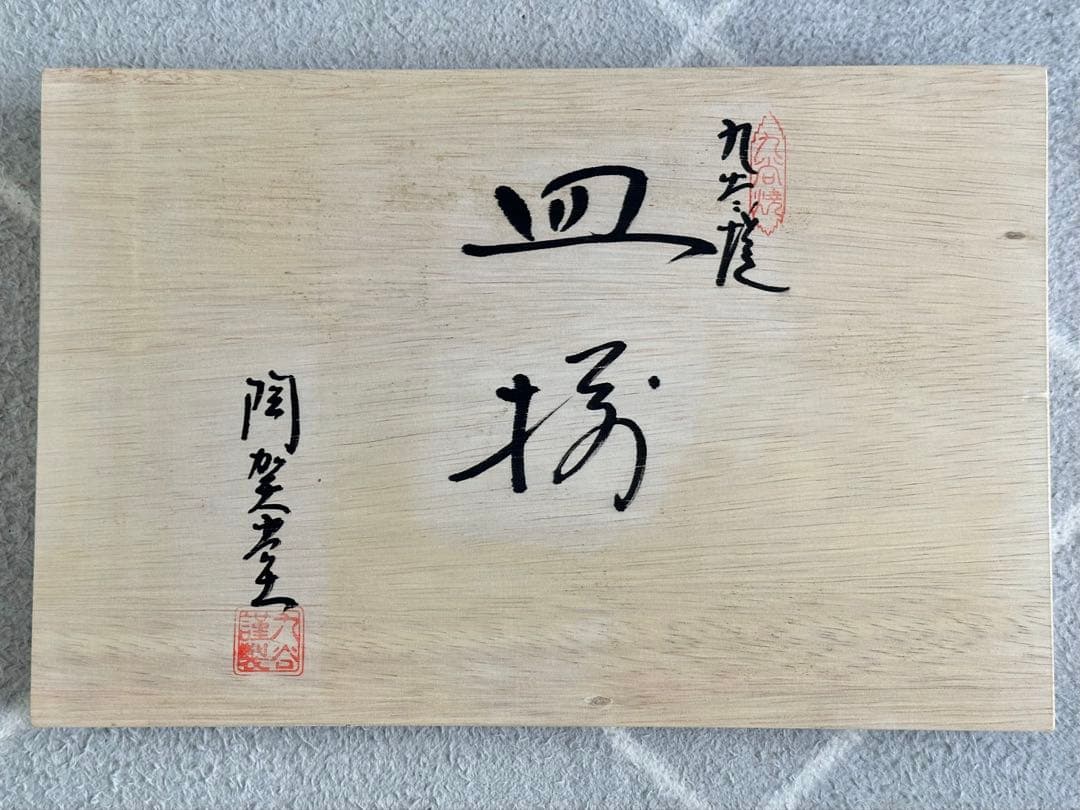 九谷焼
九谷焼
皿揃
陶賀堂
九谷
謹製